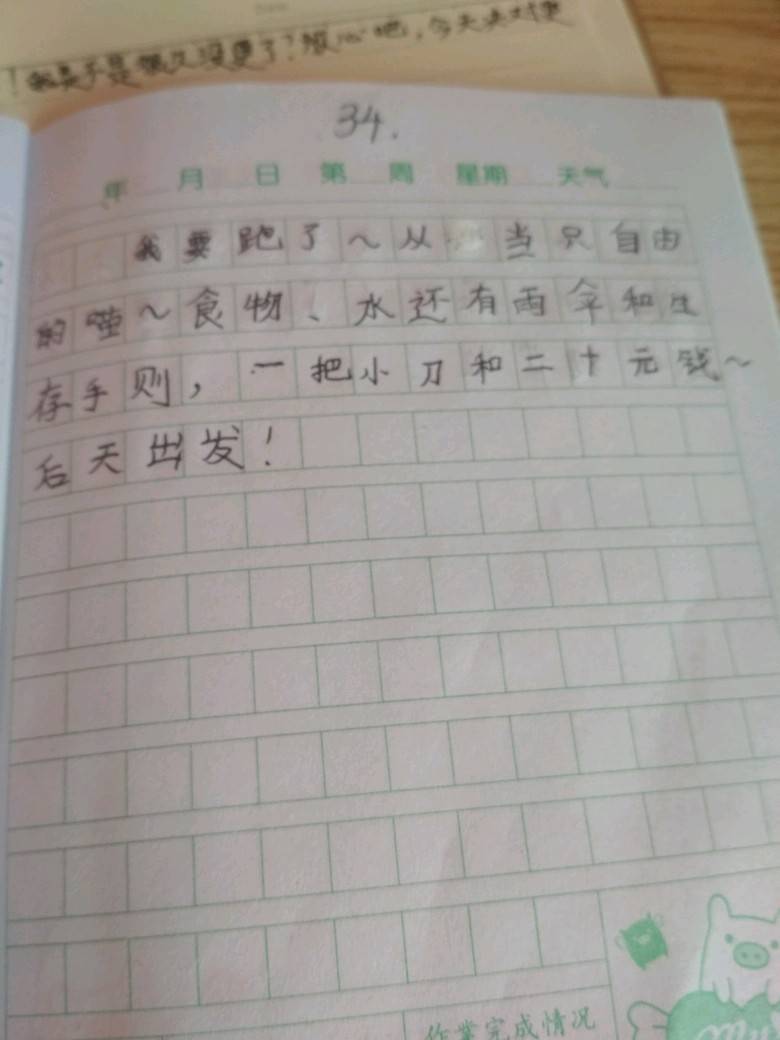 ！我是不是很久没更了？放心吧，今天决对更
34.
年 月 日 第 周 星期 天气
我要跑了～从当只自由
的喵～食物、水还有雨伞和生
存手则，一把小刀和二十元钱～
后天出发！
作业完成情况